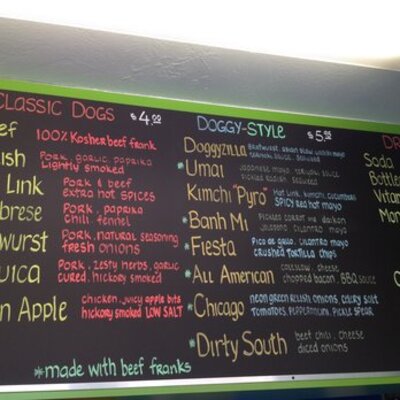 Classic Dogs $4.00
100% Kosher beef frank
Pork, garlic, paprika
Lightly smoked
Link
Pork & beef
extra hot spices
Pork, paprika
chili, fennel
Pork, natural seasoning
fresh onions
Pork, zesty herbs, garlic
cured, hickory smoked
n Apple
chicken, juicy apple bits
hickory smoked LOW SALT
*made with beef franks
Doggy-Style $5.95
Doggyzilla
*Umai
Japanese mayo, teriyaki sauce
pickled radish, seaweed
Kimchi "Pyro"
Hot Link, kimchi, cucumbers
SPICY red hot mayo
*Banh Mi
Pickled carrot and daikon
jalapeno, cilantro mayo
*Fiesta
Pico de gallo, cilantro mayo
crushed tortilla chips
*All American
coleslaw, cheese
chopped bacon, BBQ sauce
*Chicago
neon green relish, onions, celery salt
tomatoes, pepperoncini, pickle spear
*Dirty South
beef chili, cheese
diced onions
DR
Soda
Bottle
Vitam